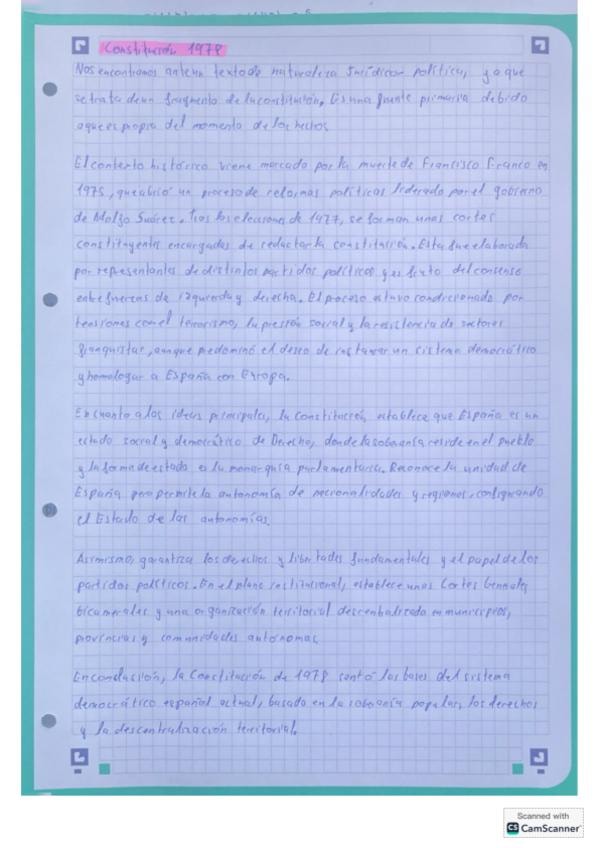 Constitución 1978
Nos encontramos ante un texto de naturaleza jurídica política, ya que
se trata de un fragmento de la constitución. Es una fuente primaria debido
a que es propio del momento de los hechos
El contexto histórico viene marcado por la muerte de Francisco Franco en
1975, que abrió un proceso de reformas políticas liderado por el gobierno
de Adolfo Suárez. Tras las elecciones de 1977, se forman unas cortes
constituyentes encargadas de redactar la constitución. Esta fue elaborada
por representantes de distintos partidos políticos y es fruto del consenso
entre fuerzas de izquierda y derecha. El proceso estuvo condicionado por
tensiones como el terrorismo, la presión social y la resistencia de sectores
franquistas, aunque predominó el deseo de instaurar un sistema democrático
y homologar a España con Europa.
En cuanto a las ideas principales, la Constitución establece que España es un
estado social y democrático de Derecho, donde la soberanía reside en el pueblo
y la forma de estado es la monarquía parlamentaria. Reconoce la unidad de
España pero permite la autonomía de nacionalidades y regiones, configurando
el Estado de las autonomías.
Asimismo, garantiza los derechos y libertades fundamentales y el papel de los
partidos políticos. En el plano institucional, establece unas Cortes Generales
bicamerales y una organización territorial descentralizada en municipios,
provincias y comunidades autónomas
En conclusión, la Constitución de 1978 sentó las bases del sistema
democrático español actual, basado en la soberanía popular, los derechos
y la descentralización territorial.
Scanned with
CS CamScanner